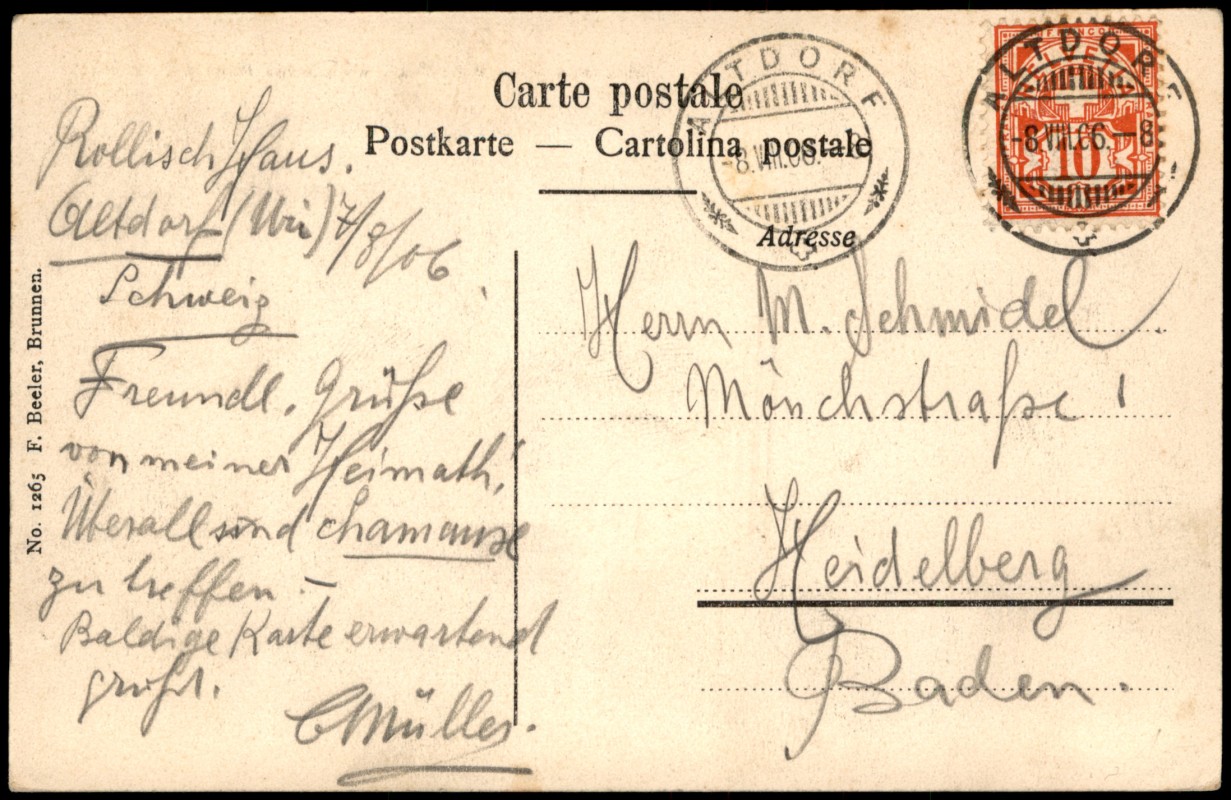 Carte postale
Postkarte — Cartolina postale
Adresse
ALTDORF
-8.VIII.06.-8
ALTDORF
-8.VIII.06.-8
FRANCO
HELVETIA
10
Rollisch Haus.
Altdorf (Uri) 7/8/06
Schweiz
Freundl. Grüße
von meiner Heimath!
Überall sind
zu treffen. —
Baldige Karte erwartend
grüßt.
C Müller.
Herrn M. Schmidel
Mönchstraße 1
Heidelberg
Baden.
No. 1265 F. Beeler, Brunnen.